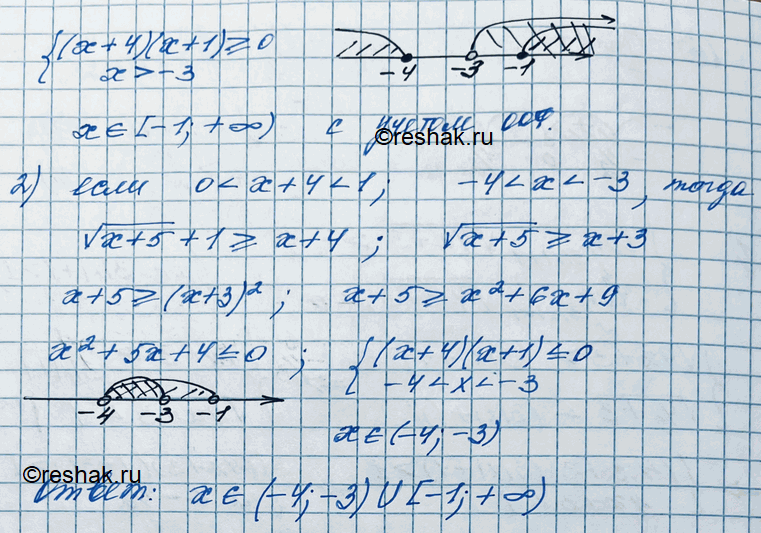 {(x+4)(x+1)≥0
x>-3
-4 -3 -1
x∈[-1;+∞) с учетом
©reshak.ru
2) если 0<x+4<1; -4<x<-3, тогда
√(x+5)+1≥x+4; √(x+5)≥x+3
x+5≥(x+3)²; x+5≥x²+6x+9
x²+5x+4≤0; {(x+4)(x+1)≤0
-4<x<-3
-4 -3 -1
x∈(-4;-3)
©reshak.ru
Ответ: x∈(-4;-3)∪[-1;+∞)